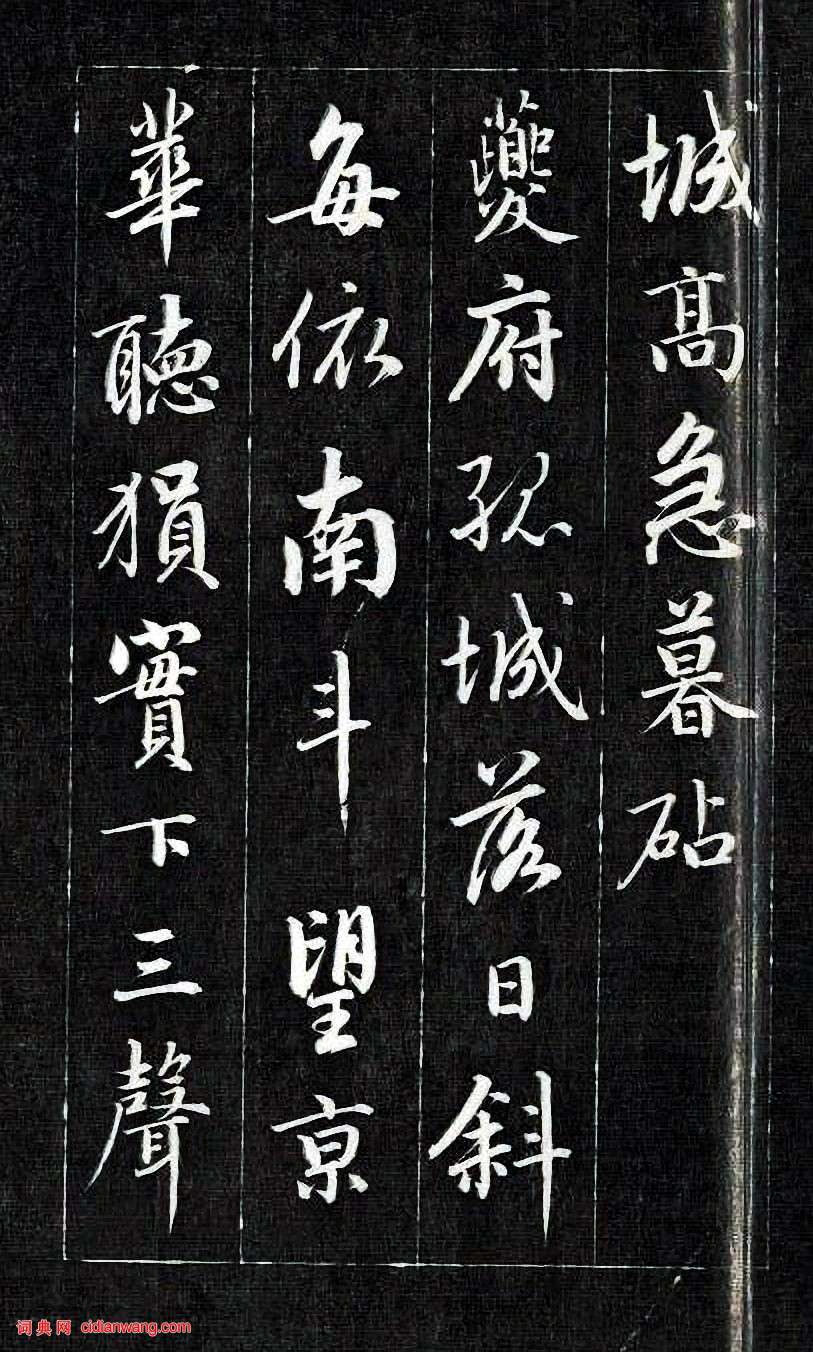 城高急暮砧
夔府孤城落日斜
每依南斗望京
華聽猨實下三聲
词典网 cidianwang.com